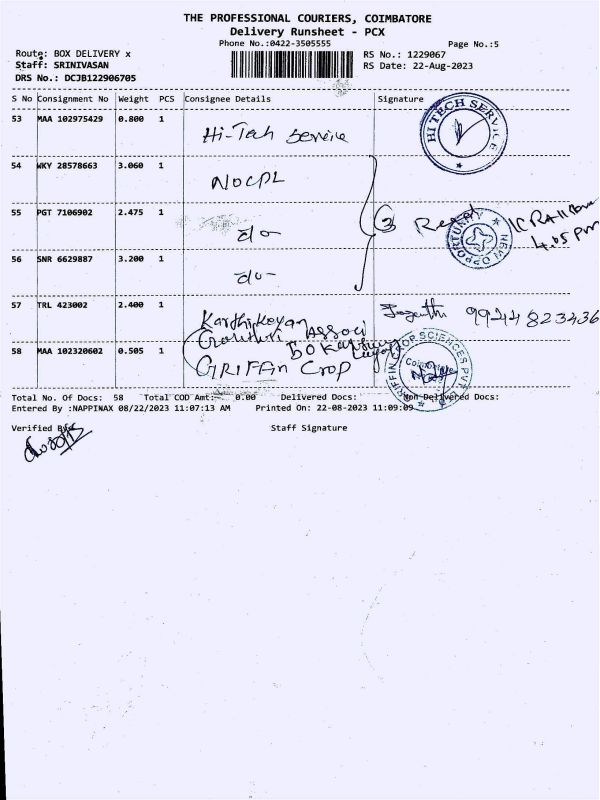 THE PROFESSIONAL COURIERS, COIMBATORE
Delivery Runsheet - PCX
Phone No.:0422-3505555
Page No.:5
Route: BOX DELIVERY x
RS No.: 1229067
Staff: SRINIVASAN
RS Date: 22-Aug-2023
DRS No.: DCJB122906705
S No Consignment No Weight PCS Consignee Details Signature
53 MAA 102975429 0.800 1 Hi-Tech Service
HI TECH SERVICE
54 WKY 28578663 3.060 1 NOCPL
55 PGT 7106902 2.475 1 do-
3 Recd
4.05 pm
NEW OPPORTUNITY
56 SNR 6629887 3.200 1 do-
57 TRL 423002 2.400 1 Karthikeyan Associ
9944823436
58 MAA 102320602 0.505 1 GRIFFin Crop
GRIFFIN CROP SCIENCES PVT LTD
Total No. Of Docs: 58 Total COD Amt: 0.00 Delivered Docs: Non Delivered Docs:
Entered By :NAPPINAX 08/22/2023 11:07:13 AM Printed On: 22-08-2023 11:09:09
Verified By: Staff Signature